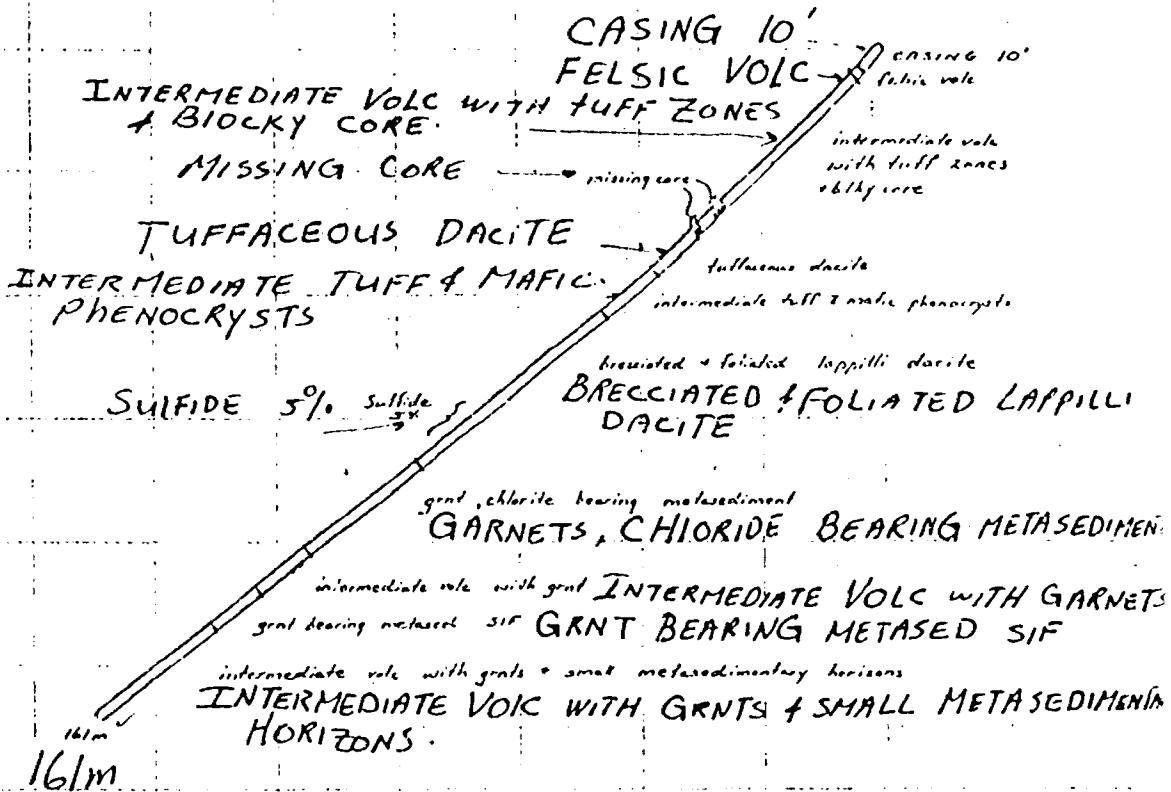 CASING 10'
CASING 10'
FELSIC VOLC
felsic volc
INTERMEDIATE VOLC WITH TUFF ZONES
& BLOCKY CORE.
intermediate volc
with tuff zones
+ blky core
MISSING CORE
missing core
TUFFACEOUS DACITE
tuffaceous dacite
INTERMEDIATE TUFF & MAFIC.
PHENOCRYSTS
intermediate tuff & mafic phenocrysts
brecciated + foliated lappilli dacite
BRECCIATED & FOLIATED LAPPILLI
DACITE
SULFIDE 5%
Sulfide
5%
grnt, chlorite bearing metasediment
GARNETS, CHLORIDE BEARING METASEDIMEN
intermediate volc with grnt
INTERMEDIATE VOLC WITH GARNETS
grnt bearing metased SIF
GRNT BEARING METASED SIF
intermediate volc with grnts + small metasedimentary horizons
INTERMEDIATE VOLC WITH GRNTS & SMALL METASEDIMENTA
HORIZONS.
161m
161m